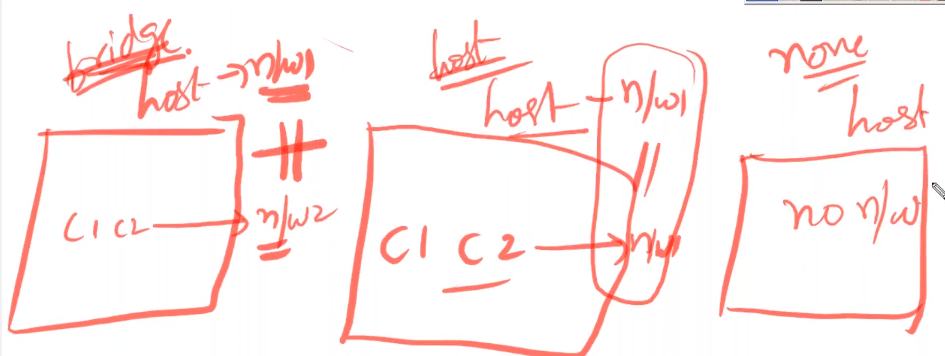 bridge.
host → n/w1
≠
C1 C2 → n/w2
host
host – n/w1
=
C1 C2 → n/w1
none
host
no n/w